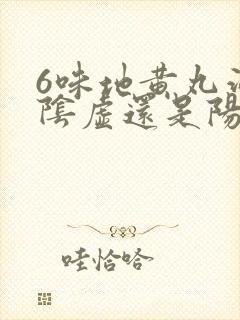 6味地黄丸
陰虛還是陽
哇恰哈